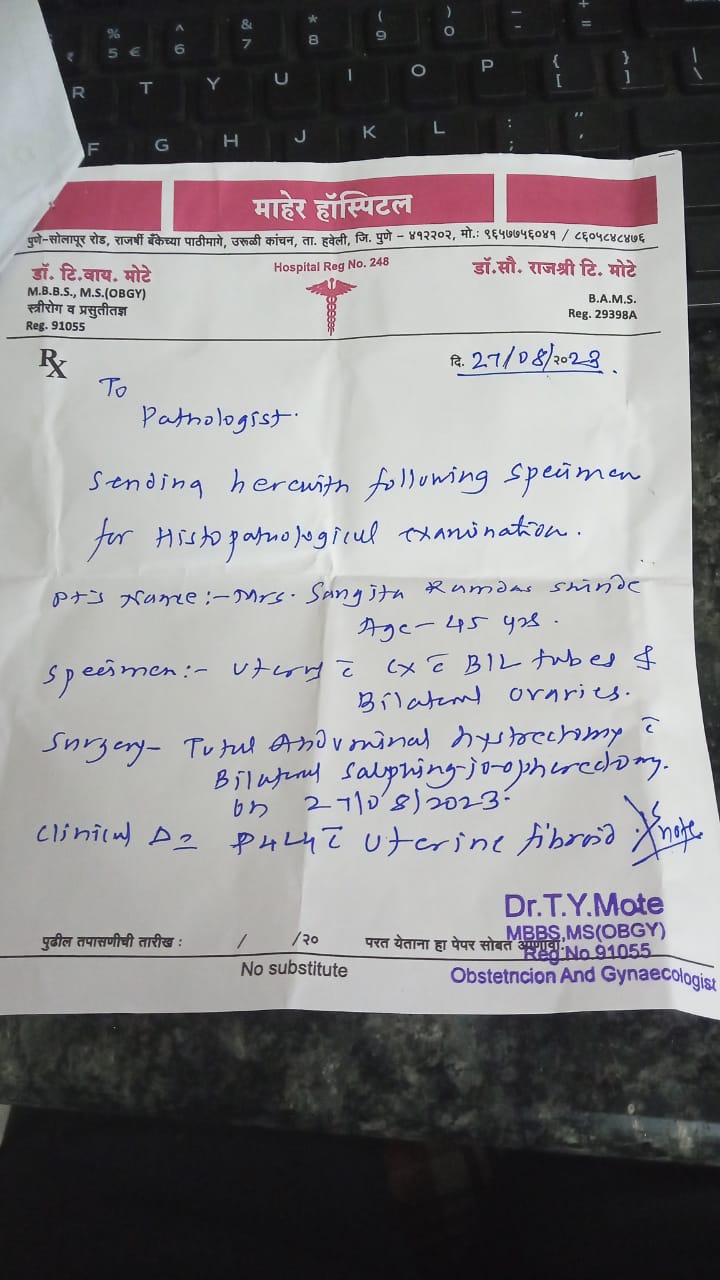 % 5 € ^ 6 & 7 * 8 ( 9 ) 0 - + =
R T Y U I O P { [ } ] \
F G H J K L : ; " '
माहेर हॉस्पिटल
पुणे-सोलापूर रोड, राजर्षी बँकेच्या पाठीमागे, उरूळी कांचन, ता. हवेली, जि. पुणे - ४१२२०२, मो.: ९६५७७५६०४१ / ८६०५४८४४७६
Hospital Reg No. 248
डॉ. टि.वाय. मोटे
M.B.B.S., M.S.(OBGY)
स्त्रीरोग व प्रसुतीतज्ञ
Reg. 91055
डॉ.सौ. राजश्री टि. मोटे
B.A.M.S.
Reg. 29398A
Rx
दि. 27/08/२०23.
To
Pathologist.
Sending herewith following specimen
for Histopathological examination.
Pt's Name:- Mrs. Sangita Ramdas Shinde
Age- 45 yrs.
Specimen:- Uterus c̄ cx c̄ B/L tubes &
Bilateral ovaries.
Surgery- Total Abdominal hystrectomy c̄
Bilateral Salphingo-oopherectomy.
on 27/08/2023.
Clinical D= P4L4 c̄ Uterine fibroid.
Dr.T.Y.Mote
MBBS,MS(OBGY)
Reg.No.91055
Obstetncion And Gynaecologist
पुढील तपासणीची तारीख : / /२० परत येताना हा पेपर सोबत आणावा.
No substitute